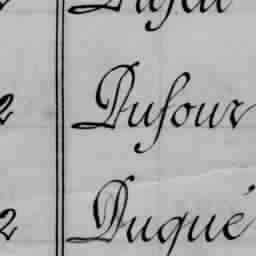 2 Dufour
2 Duqué